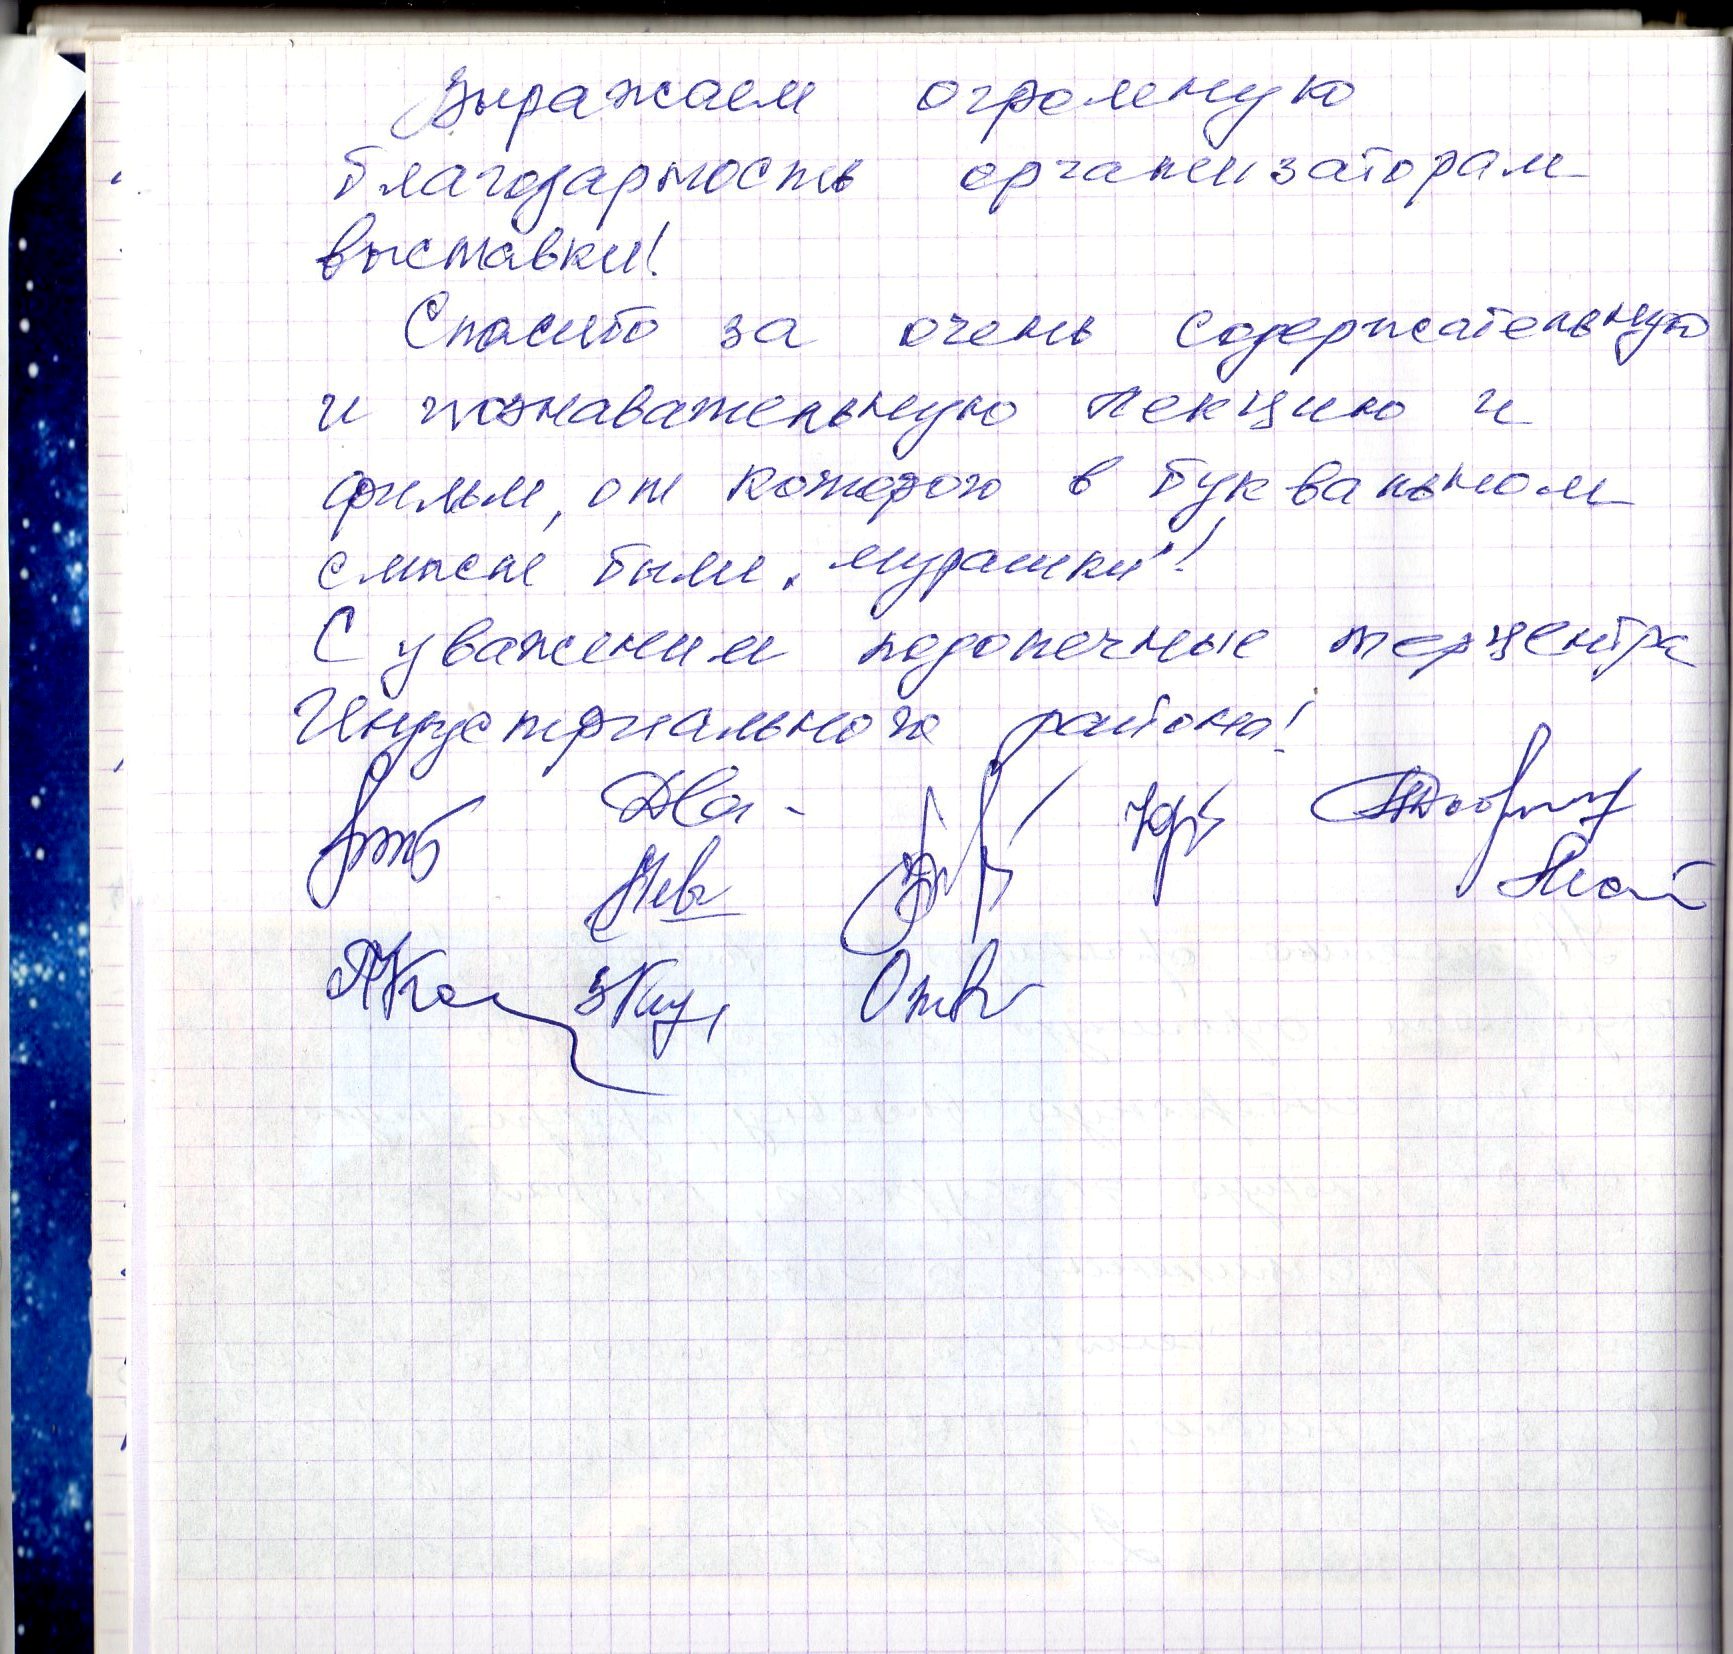 Выражаем огромную
благодарность организаторам
выставки!
Спасибо за очень содержательную
и познавательную лекцию и
фильм, от которого в буквальном
смысле были „мурашки"!
С уважением подопечные терцентра
Индустриального района!